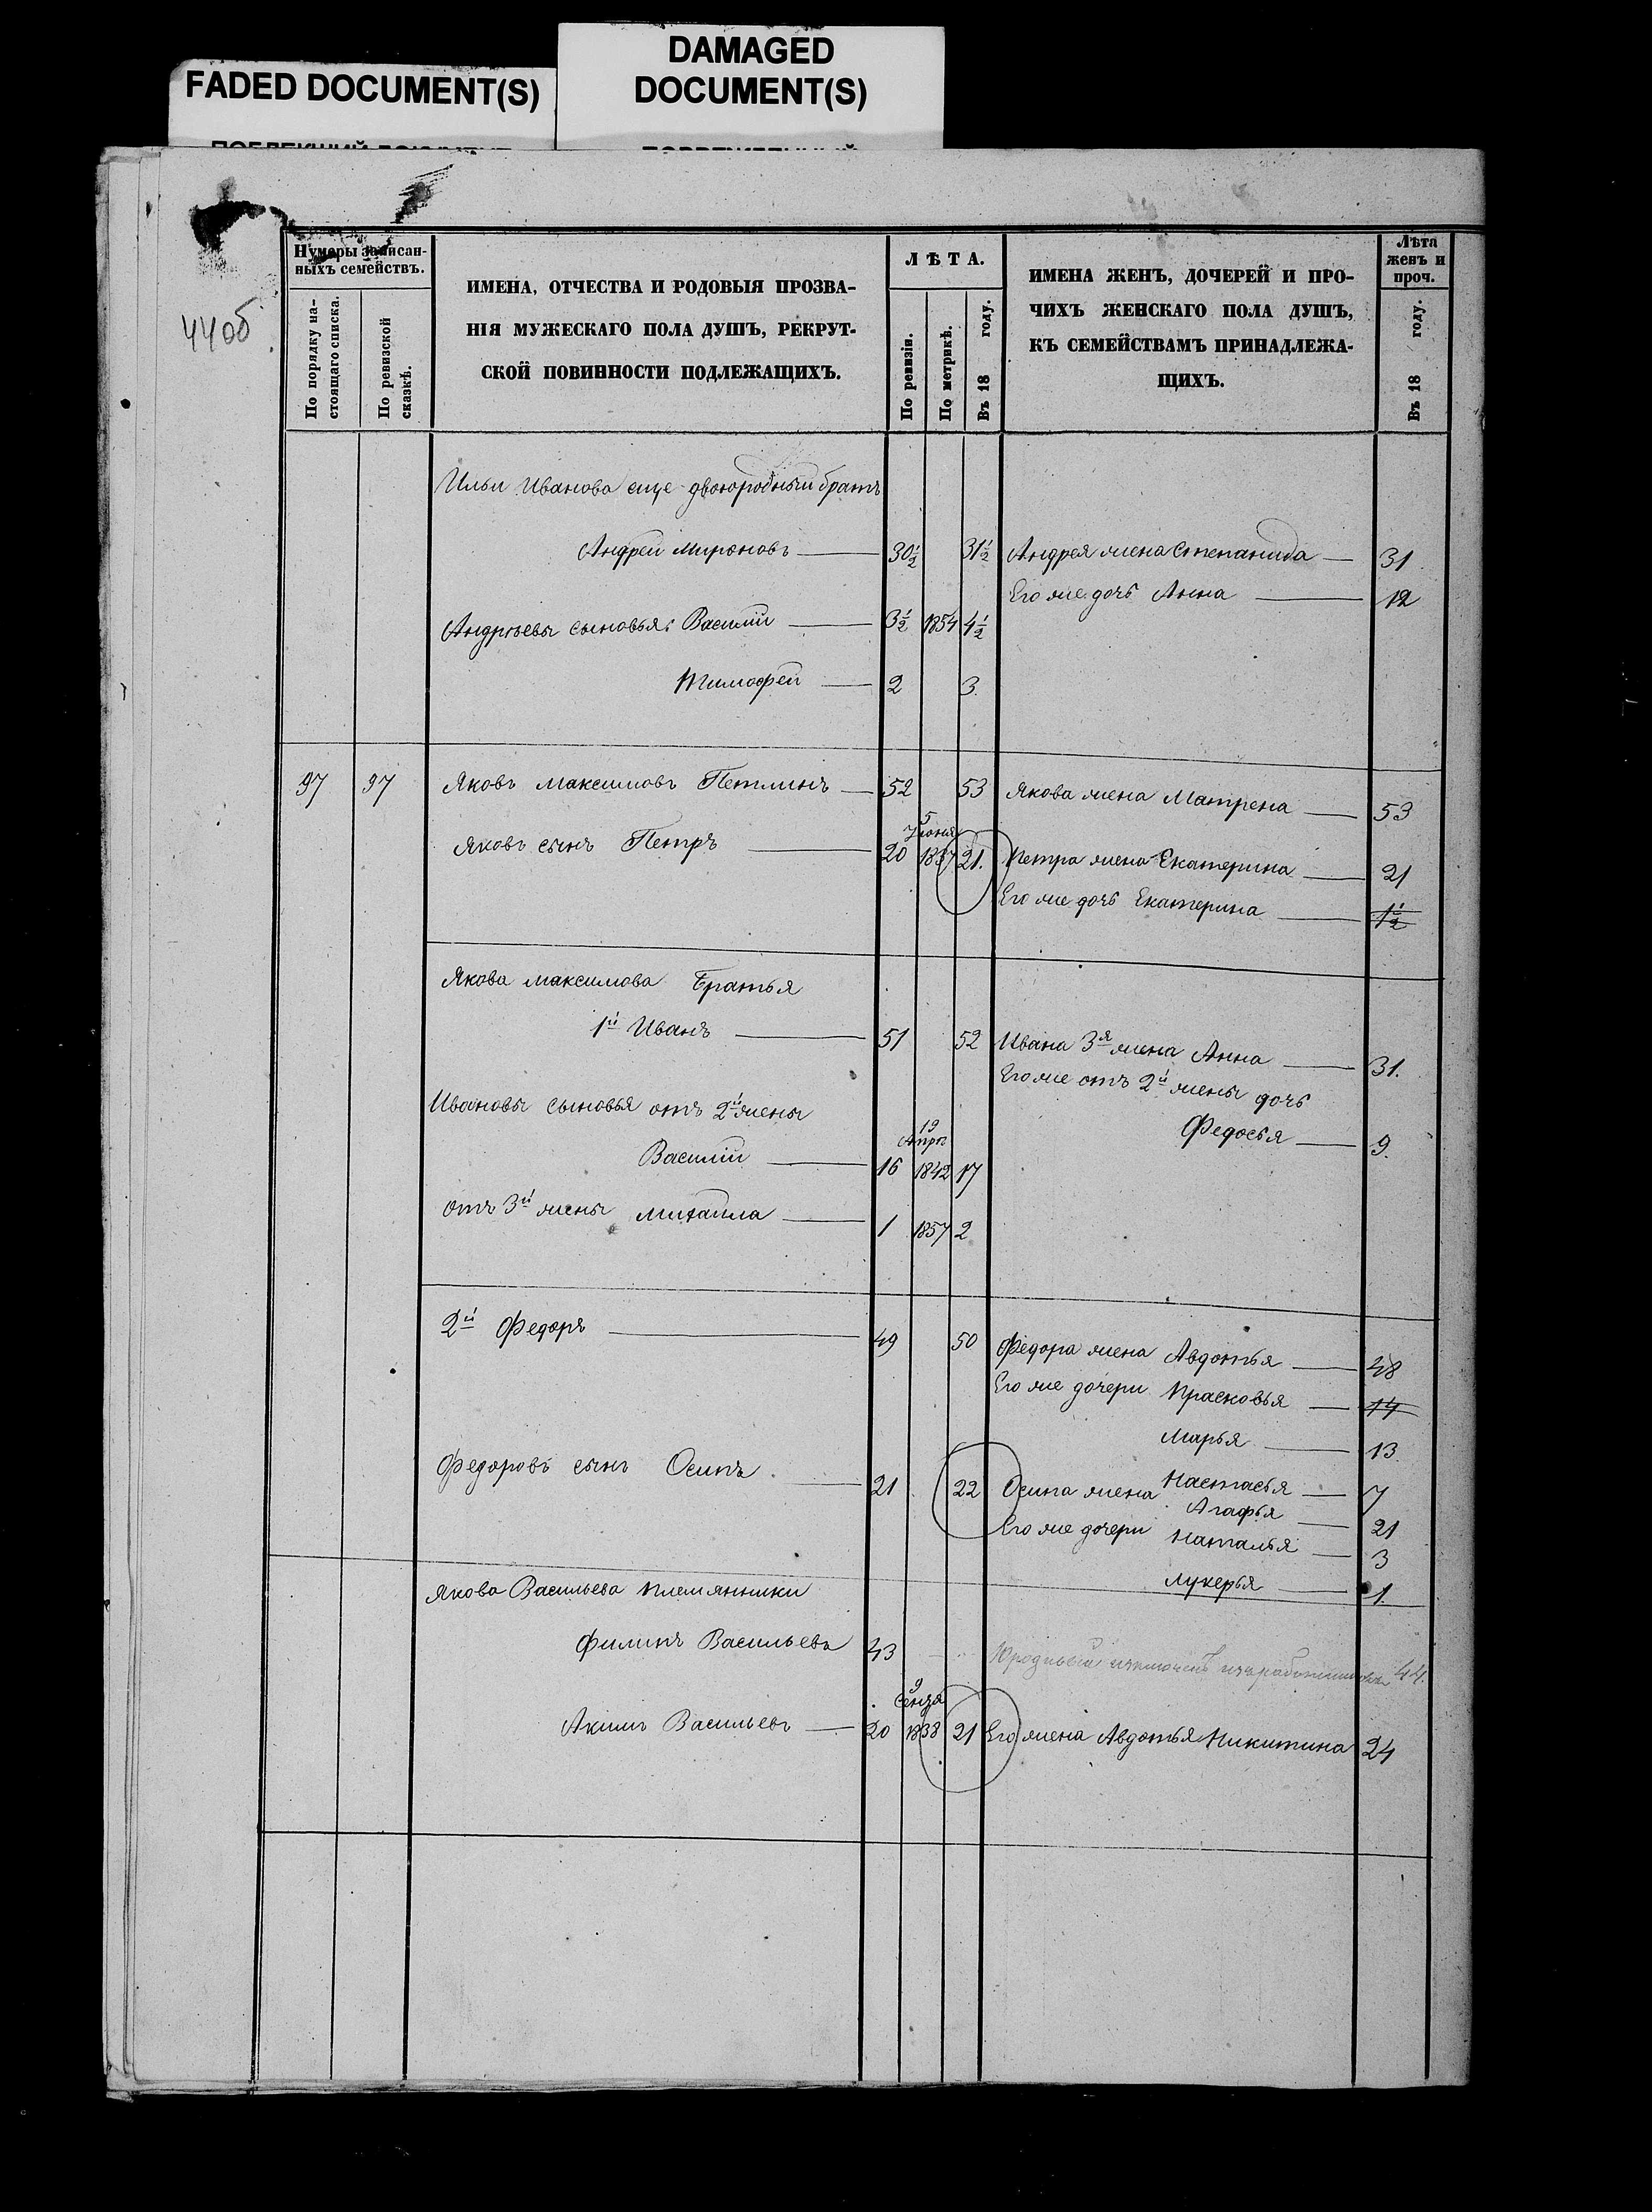 FADED DOCUMENT(S)
DAMAGED
DOCUMENT(S)
44об
Нумеры записан-
ныхъ семействъ.
По порядку на-
стоящаго списка.
По ревизской
сказкѣ.
ИМЕНА, ОТЧЕСТВА И РОДОВЫЯ ПРОЗВА-
НІЯ МУЖЕСКАГО ПОЛА ДУШЪ, РЕКРУТ-
СКОЙ ПОВИННОСТИ ПОДЛЕЖАЩИХЪ.
ЛѢТА.
По ревизіи.
По метрикѣ.
Въ 18 году.
ИМЕНА ЖЕНЪ, ДОЧЕРЕЙ И ПРО-
ЧИХЪ ЖЕНСКАГО ПОЛА ДУШЪ,
КЪ СЕМЕЙСТВАМЪ ПРИНАДЛЕЖА-
ЩИХЪ.
Лѣта
женъ и
проч.
Въ 18 году.
Ильи Иванова еще двоюродный братъ
Андрей Мироновъ 30½ 31½ Андрея жена Степанида 31
Его же дочь Анна 12
Андрѣевы сыновья: Василій 3½ 1854 4½
Тимофей 2 3
97 97 Яковъ Максимовъ Петлинъ 52 53 Якова жена Матрена 53
5
Іюня
Яковъ сынъ Петръ 20 1837 21. Петра жена Екатерина 21
Его же дочь Екатерина 1½
Якова Максимова Братья
1й Иванъ 51 52 Ивана 3я жена Анна 31.
Его же отъ 2й жены дочь
Ивановы сыновья отъ 2й жены
Федосья 9.
19
Апрѣ
Василій 16 1842 17
отъ 3й жены Михаила 1 1857 2
2й Федоръ 49 50 Федора жена Авдотья 48
Его же дочери Прасковья 14
Марья 13
Настасья 7
Федоровъ сынъ Осипъ 21 22 Осипа жена Агафья 21
Его же дочери Наталья 3
Лукерья 1
Якова Васильева племянники
Филипъ Васильевъ 43 44.
9
Сентя
Акимъ Васильевъ 20 1838 21 Его жена Авдотья Никитина 24